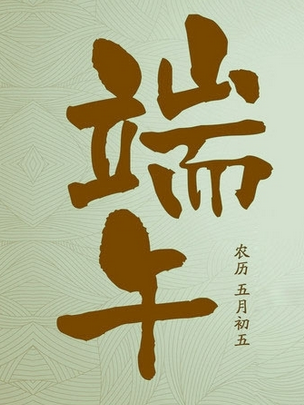 端午
农历 五月初五